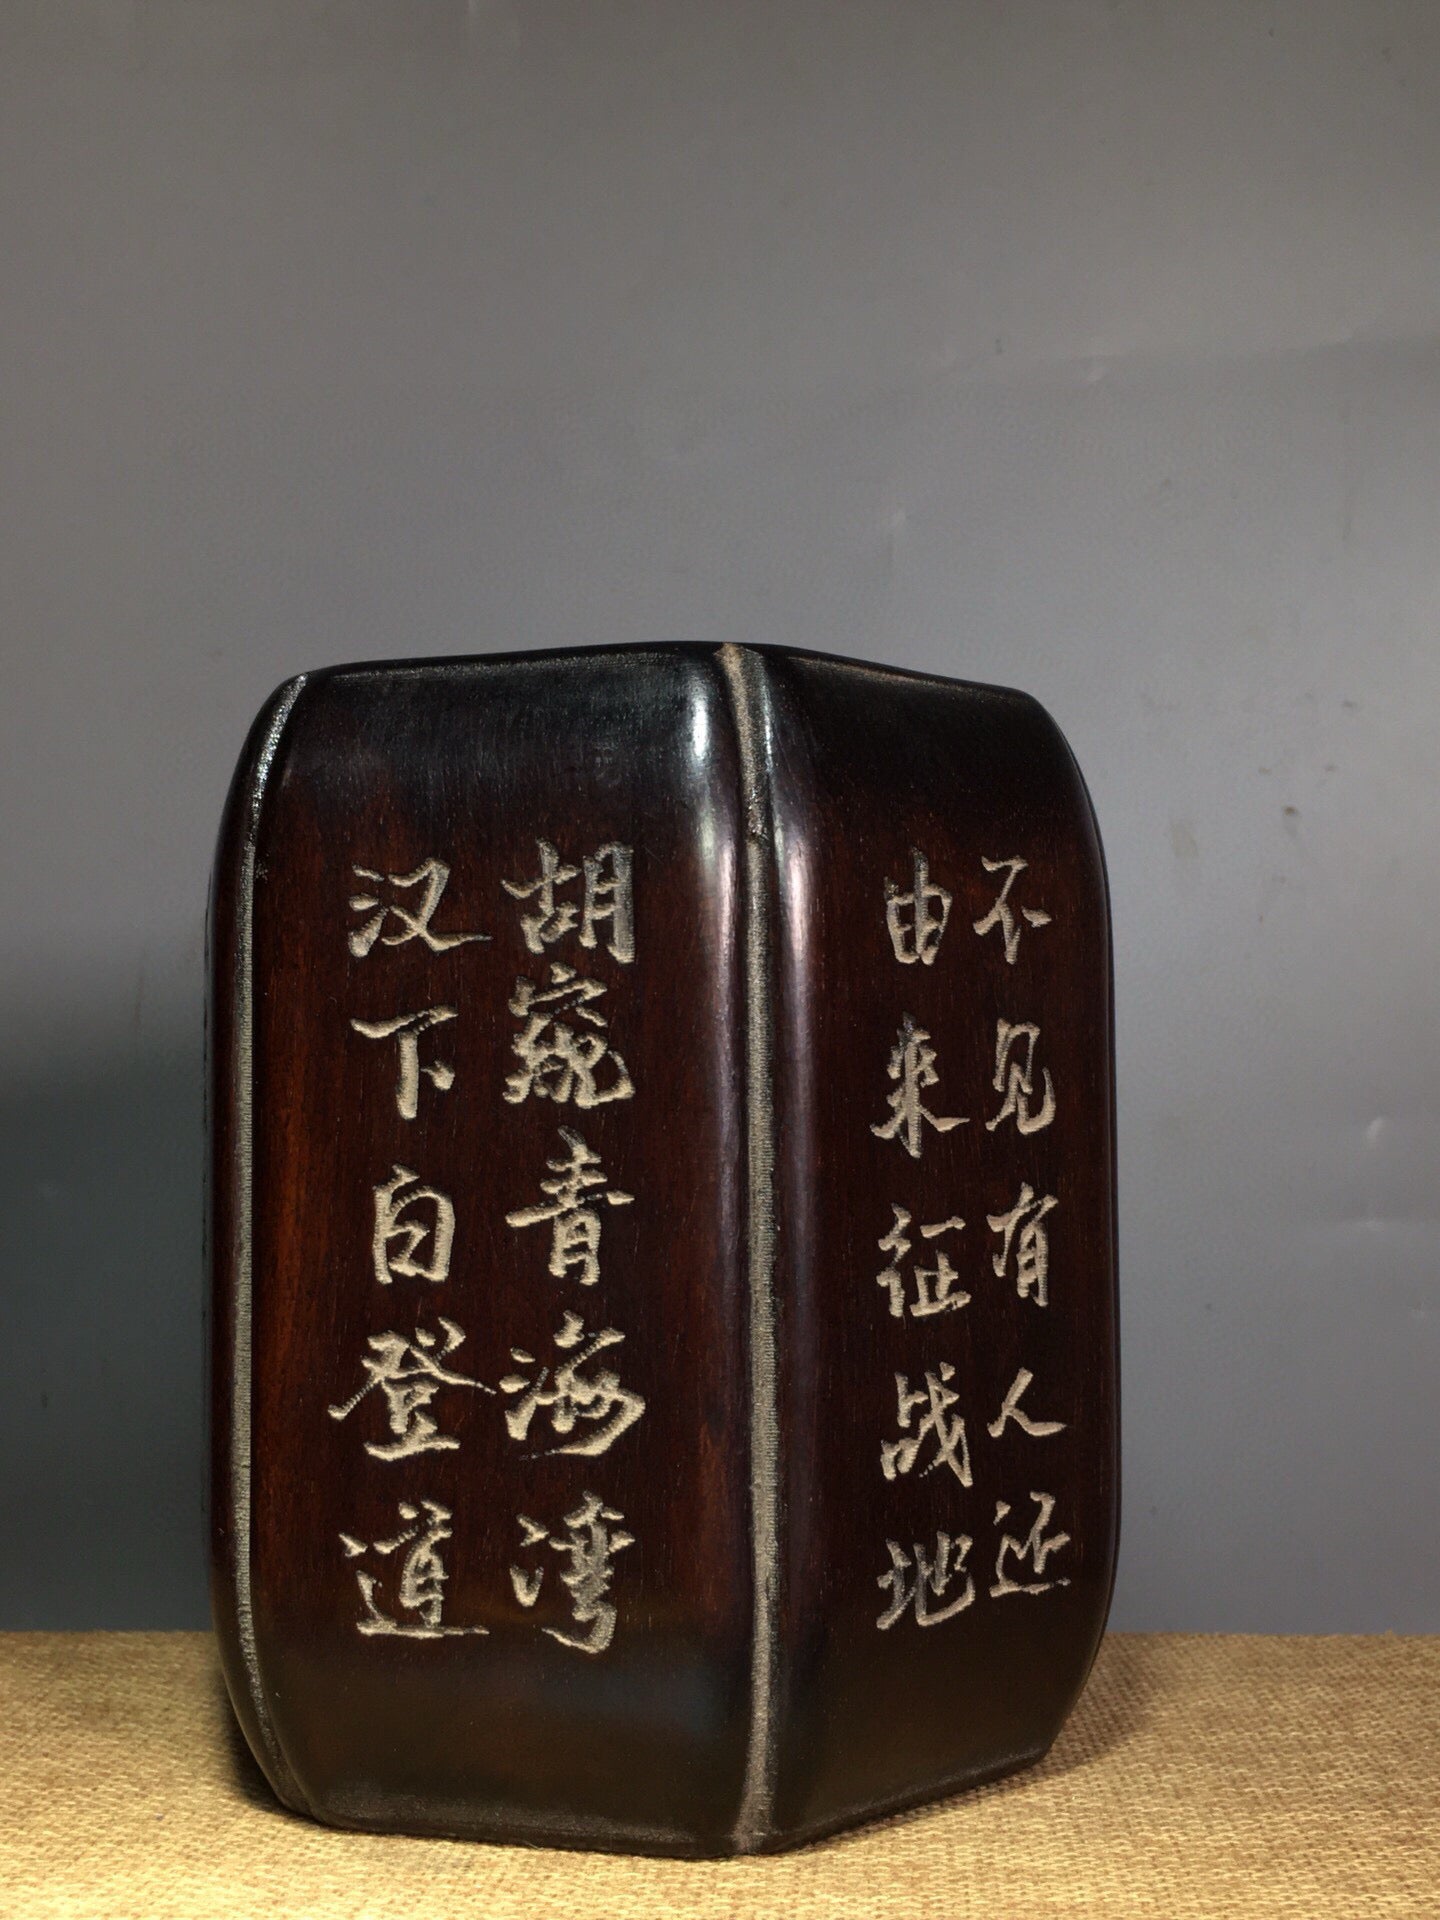 汉下白登道
胡窥青海湾
由来征战地
不见有人还